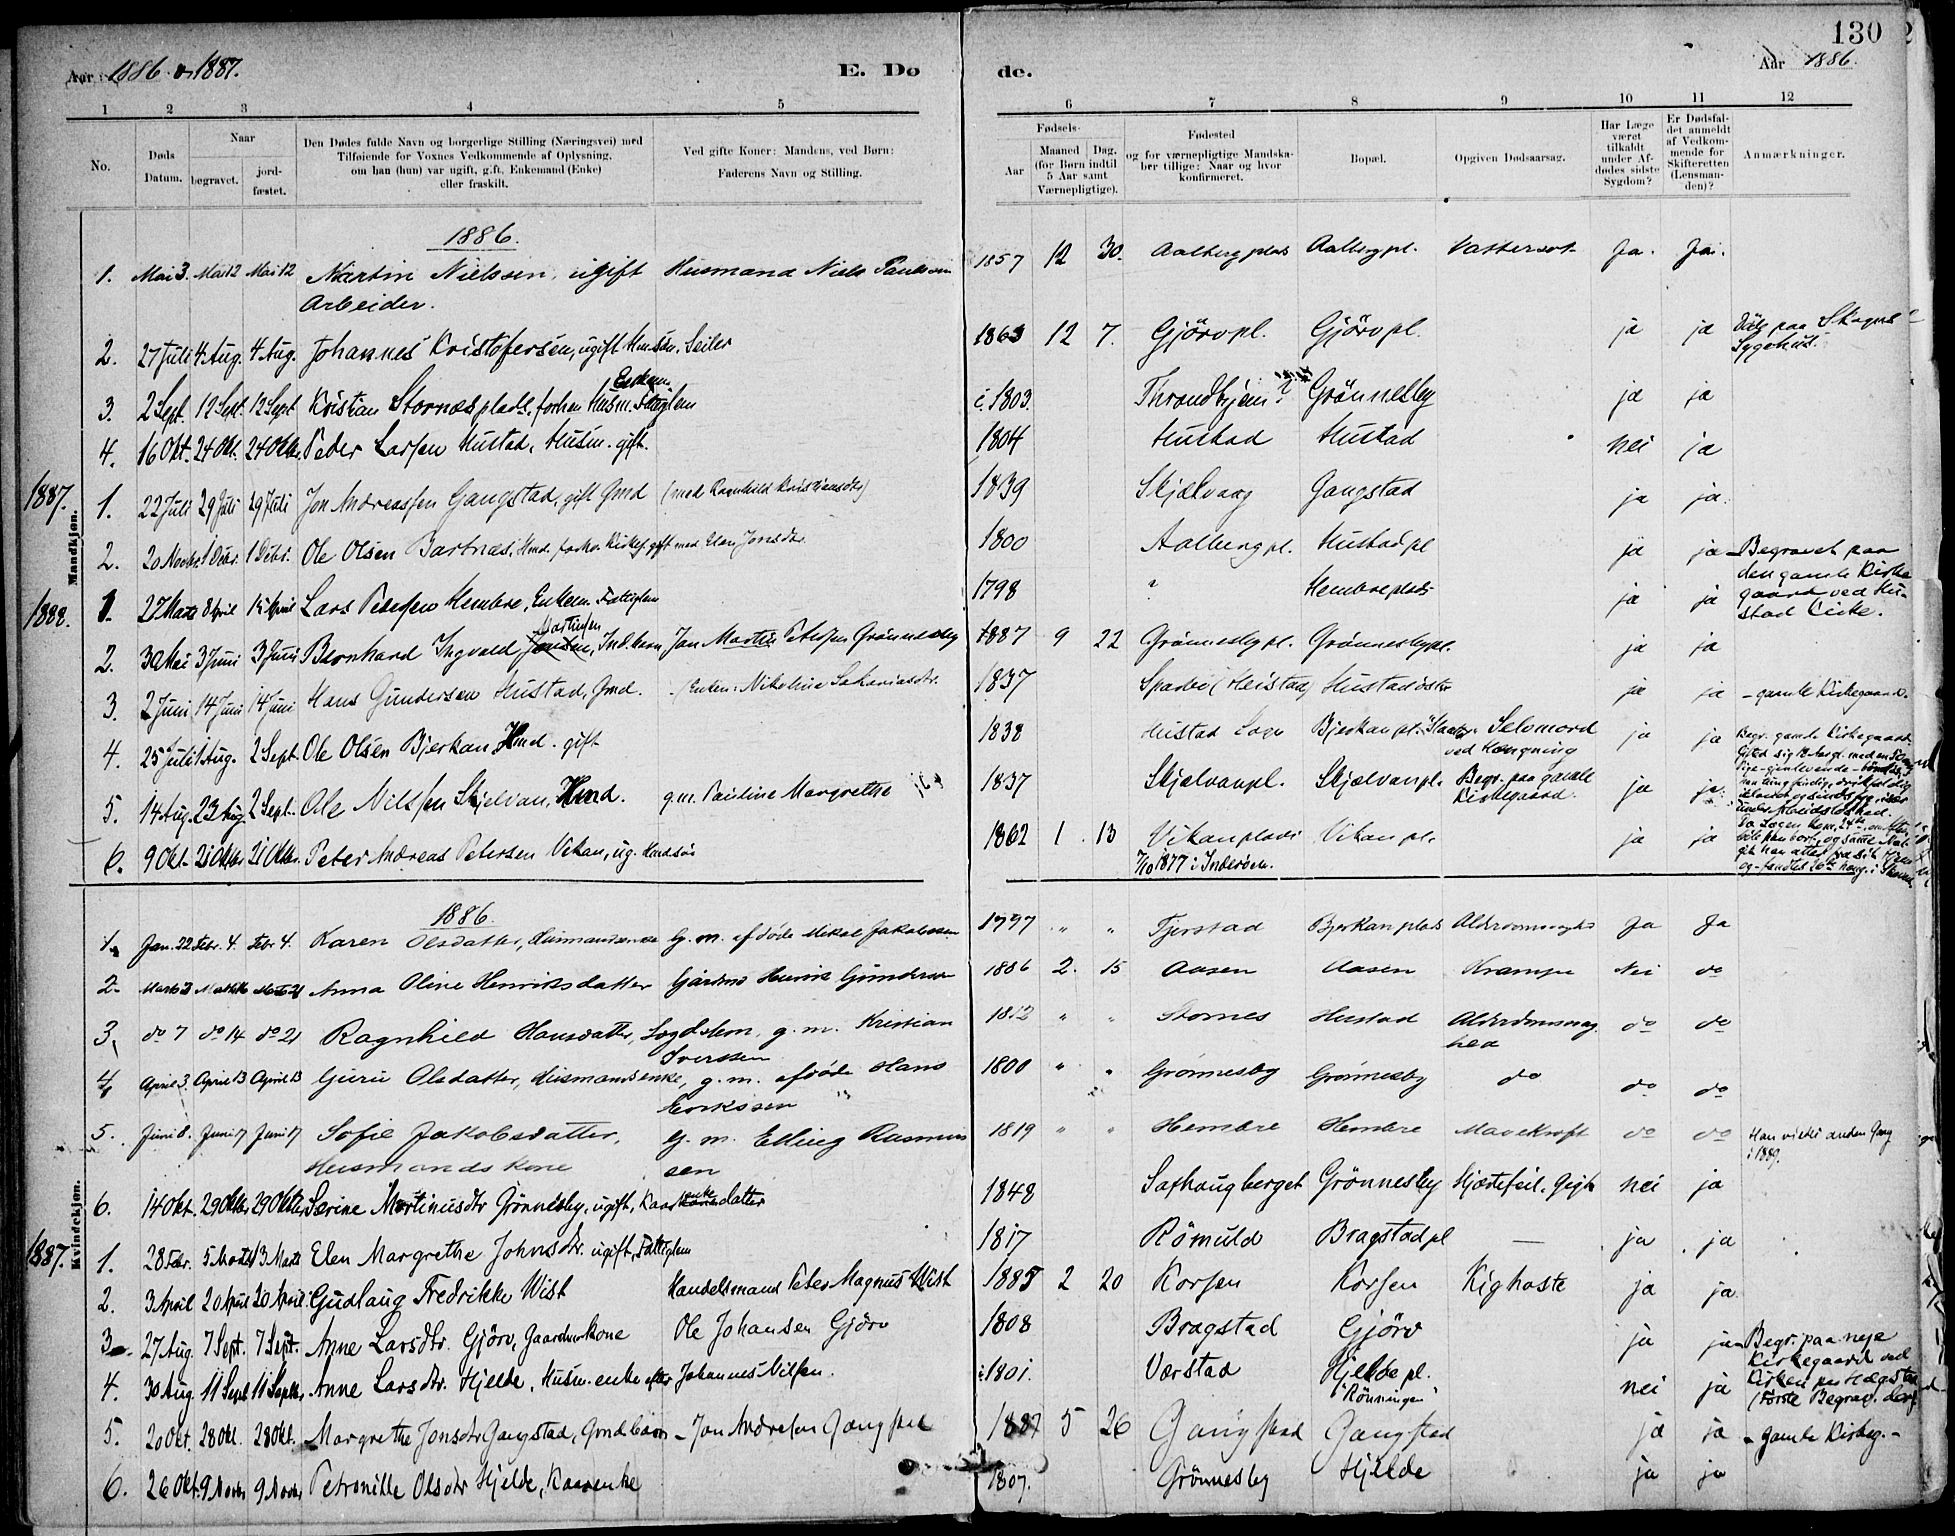 130
Aar 1886 og 1887.
E. Dø
de.
Aar 1886.
1 2 3 4 5 6 7 8 9 10 11 12
No.
Døds Datum.
Naar
begravet.
jord-
fæstet.
Den Dødes fulde Navn og borgerlige Stilling (Næringsvei) med
Tilføiende for Voxnes Vedkommende af Oplysning,
om han (hun) var ugift, gift, Enkemand (Enke)
eller fraskilt.
Ved gifte Koner: Mandens, ved Børn:
Faderens Navn og Stilling.
Fødsels-
Aar
Maaned Dag.
(for Børn indtil
5 Aar samt
Værnepligtige).
Fødested
og for værnepligtige Mandska-
ber tillige: Naar og hvor
konfirmeret.
Bopæl.
Opgiven Dødsaarsag.
Har Læge
været
tilkaldt
under Af-
dødes sidste
Sygdom?
Er Dødsfal-
det anmeldt
af Vedkom-
mende for
Skifteretten
(Lensman-
den)?
Anmærkninger.
Mandkjøn.
1886.
1. Mai 3. Mai 12 Mai 12 Martin Nielsen, ugift Husmand Niels Paulsen 1857 12 30. Aalberg plads Aalberg pl. Vattersot Ja. Ja.
Arbeider.
2. 27 Juli 4 Aug. 4 Aug. Johannes Kristofersen, ugift Hmsøn. Seiler 1863 12 7. Gjörv pl. Gjörv pl. ja ja Död paa Skogns
Sygehus.
3. 2 Sept. 12 Sept. 12 Sept Kristian Stornesplads, forhen Husm. Fattiglem 1803. Throndhjem? Grönnesby ja ja
4. 16 Okt. 24 Okt. 24 Oktbr. Peder Larsen Hustad, Husm. gift. 1804 Hustad Hustad nei ja
1887.
1. 22 Juli 29 Juli 29 Juli Jon Andreassen Gangstad, gift Gmd (med Ragnhild Kristiansdtr) 1839 Skjelvaag Gangstad ja ja.
2. 20 Novbr. 1 Debr. 1 Debr. Ole Olsen Bartnes, Hmd. forhv. Kirkes. gift med Elen Jonsdtr. 1800 Aalberg pl. Hustad pl ja ja Begravet paa
den gamle Kirke
gaard ved Hu-
stad Kirke.
1888.
1. 27 Marts 8 April 15 April Lars Petersen Hembre, Enkem. Fattiglem 1798 ? Hembreplads ja ja
2. 30 Mai 3 Juni 3 Juni Bernhard Ingvald Martinsen, Ind. barn Jon Martin Petersen Grönnesby 1887 9 22 Grönnesby pl. Grönnesbypl. ja ja
3. 2 Juni 14 Juni 14 Juni Hans Gundersen Hustad, Gmd. (Enken: Nikoline Sakariasdtr. 1837 Sparbo (Heistad) Hustad östre ja ja - gamle Kirkegaard.
4. 25 Juli 1 Aug. 2 Sept. Ole Olsen Bjerkan Hmd. gift 1838 Hustad Sogn Bjerkan pl. Selvmord ja ja Begr. gamle Kirkegaard.
ved Hængning
5. 14 Aug. 23 Aug. 2 Sept. Ole Nilssen Skjelvan, Hmd. g.m. Pauline Margrethe 1837 Skjelvanpl. Skjelvanpl. Begr. paa gamle ja ja
Kirkegaard.
6. 9 Okt. 21 Oktbr. 21 Oktbr. Peter Andreas Petersen Vikan, ug. Hmdsøn 1862 1 13 Vikan plads Vikan pl. ja ja
7/10 1877 i Inderöen.
Kvindekjøn.
1886.
1. Jan. 22 Febr. 4. Febr 4. Karen Olsdatter, Husmandsenke G. m. afdöde Mikal Jakobsen 1797 " " Tjerstad Bjerkan plads Ja Ja
2. Marts 3 Anna Oline Henriksdatter Gårdm. Henrik Gundersen 1886 2. 15 Aasen Aasen Krampe Nei do
3. do 7 do 14 do 21 Ragnhild Hansdatter, Lægdslem, g. m. Kristian 1812 " " Stornes Hustad Alderdomssvag do do
Iverssen hed
4. April 3. April 13 April 13 Guru Olsdatter, Husmandsenke, g. m. afdöde Hans 1800 " " Grönnesby Grönnesby do do do
Erikssen
5. Juni 8. Juni 17 Juni 17 Sofie Jakobsdatter, G. m. Elling Rasmus 1819 " " Hembre Hembre Mavekræft do do Han viedes anden Gang
Husmandskone sen i 1889.
6. 14 Okt. 29 Oktbr. 29 Oktbr Serine Martinusdtr Grönnesby, ugift, 1848 Safhaugberget Grönnesby Hjertefeil, Gigt nei ja
1887.
1. 28 Febr. 5 Marts 13 Marts Elen Margrethe Johnsdtr. ugift, Fattiglem 1817 Römuld Bragstad pl — ja ja
2. 3 April 20 April 20 April Gudlaug Fredrikke Wist Handelsmand Peter Magnus Wist 1885 2 20 Korsen Korsen Kighoste ja ja.
3. 27 Aug. 7 Sept. 7 Sept. Anne Larsdtr. Gjörv, Gaardmkone Ole Johansen Gjörv 1808 Bragstad Gjörv ja ja Begr. paa nye
Kirkegaard ved
4. 30 Aug. 11 Sept 11 Septbr. Anne Larsdtr. Hjelde, Husm. enke efter Johannes Nilsen. 1801. Værstad Hjelde pl. nei ja Kirken paa Hægstad
"Rönningen" (Første Begrav. der)
5. 20 Okt. 28 Okt. 28 Okt. Margrethe Jonsdtr Gangstad, Gmd barn - Jon Andresen Gangstad 1887 5 26 Gangstad Gangstad ja ja - gamle Kirkeg. -
6. 26 Okt. 9 Novbr. 9 Novbr. Petronille Olsdtr Hjelde, Kaarenke 1807. Grönnesby Hjelde ja ja